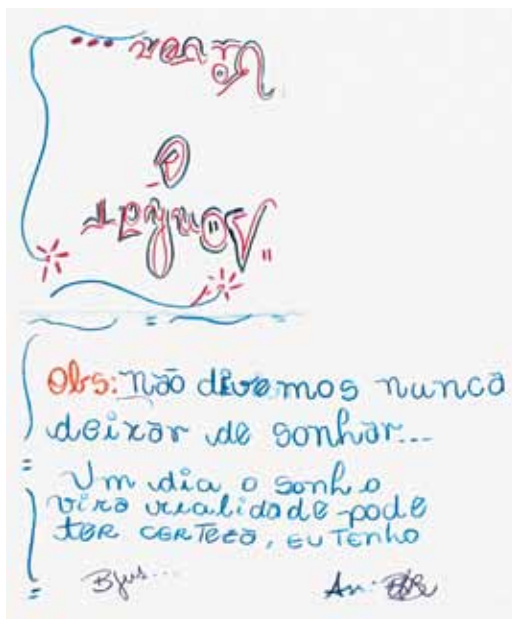 "Sonhar
é
Obs: Não devemos nunca
deixar de sonhar...
Um dia o sonho
vira realidade pode
ter certeza, eu tenho
Bjus...